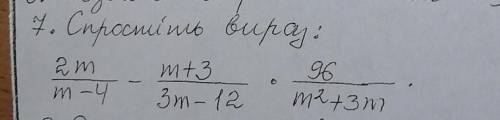 7. Спростіть вираз:
2m/(m-4) - (m+3)/(3m-12) · 96/(m²+3m).